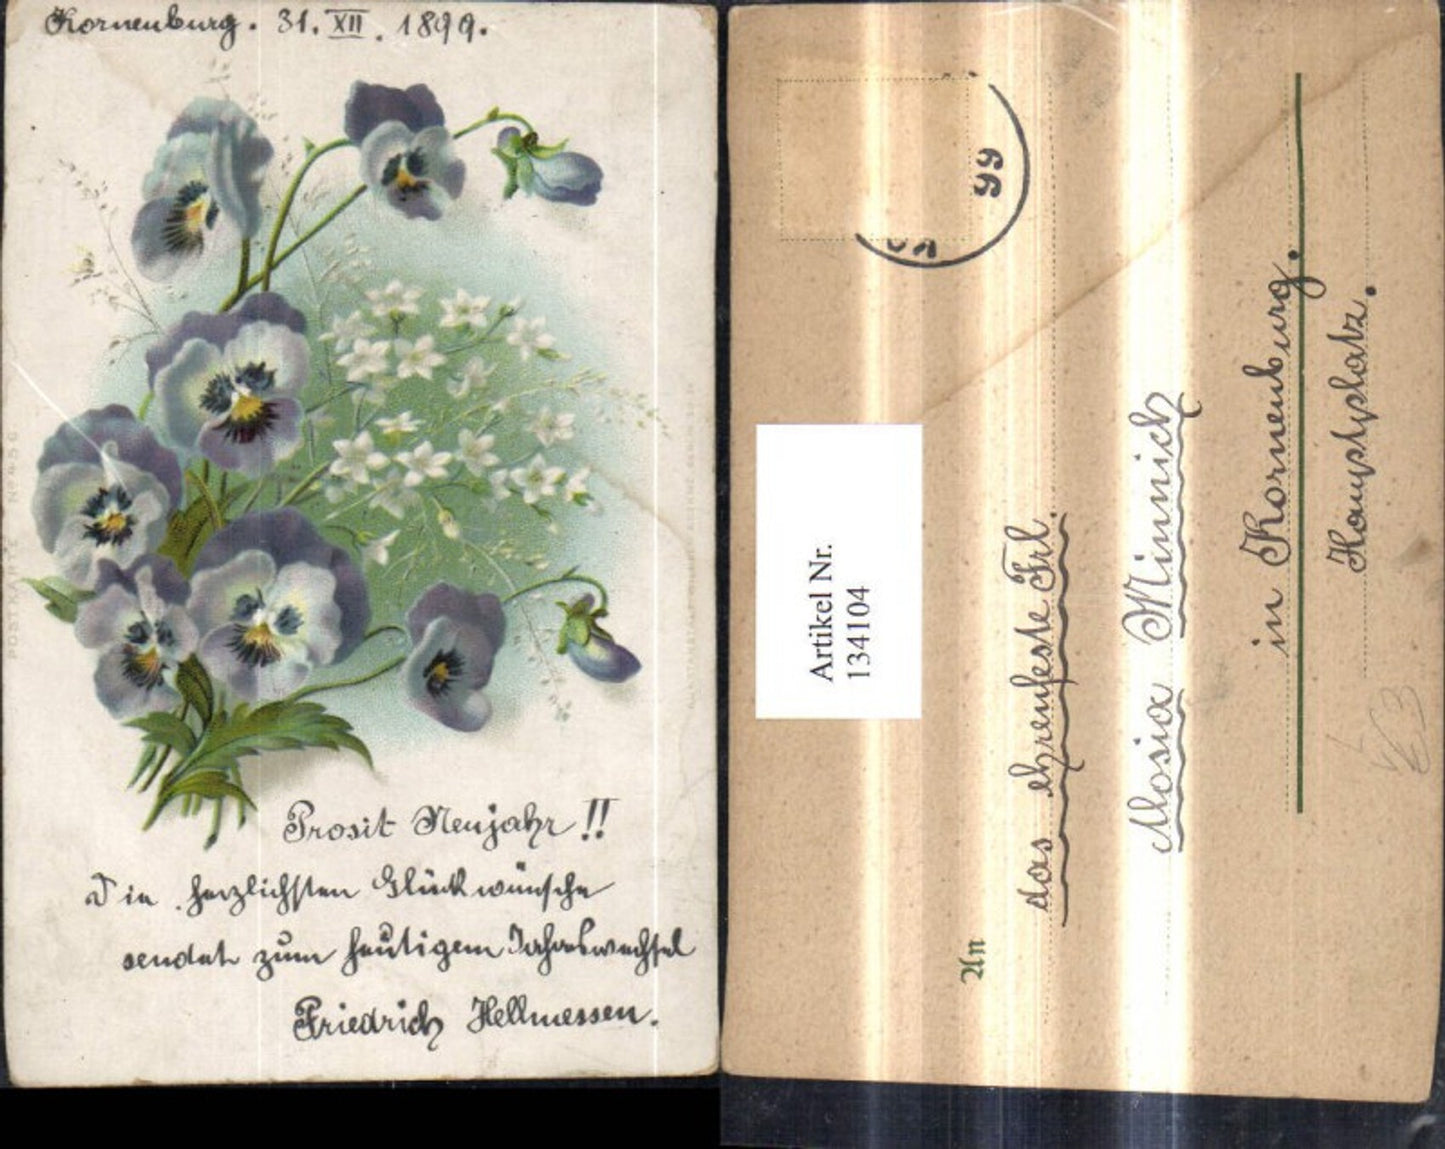 Korneuburg. 31. XII. 1899.
Prosit Neujahr!!
Die herzlichsten Glückwünsche
sendet zum heutigen Jahreswechsel
Friedrich Hellmessen.
POSTKARTE No 456
99
Artikel Nr.
1341104
An
das ehrenfeste Frl.
Minnich
in Korneuburg.
Hauptplatz.